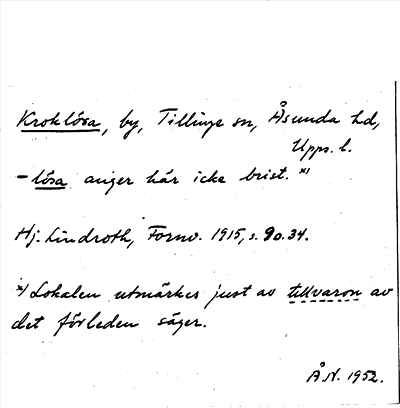 Kroklösa, by, Tillinge sn, Åsunda hd,
Upps. l.
- lösa anger här icke brist. x)
Hj. Lindroth, Fornv. 1915, s. 9 o. 34.
x) Lokalen utmärkes just av tillvaron av
det förleden säger.
Å.N. 1952.